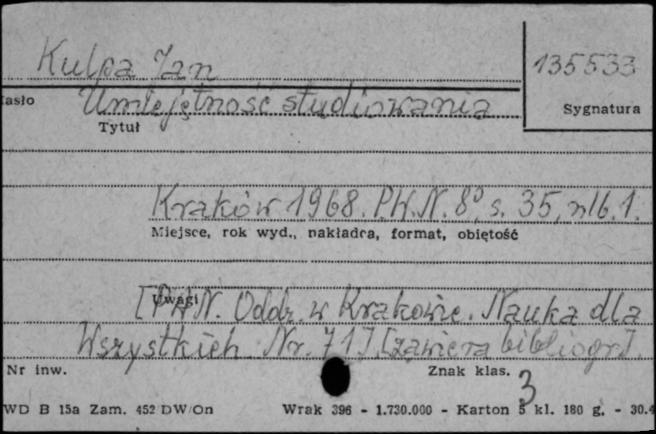 Kulpa Jan
135533
asło Umiejętność studiowania
Sygnatura
Tytuł
Kraków 1968. P.W.N. 8°, s. 35, nlb. 1.
Miejsce, rok wyd., nakładca, format, objętość
Uwagi
[PWN. Oddz. w Krakowie. Nauka dla
Wszystkich. Nr. 71] [zawiera bibliogr].
Nr inw.
Znak klas.
3
WD B 15a Zam. 452 DW/On Wrak 396 - 1.730.000 - Karton 5 kl. 180 g. - 30.4